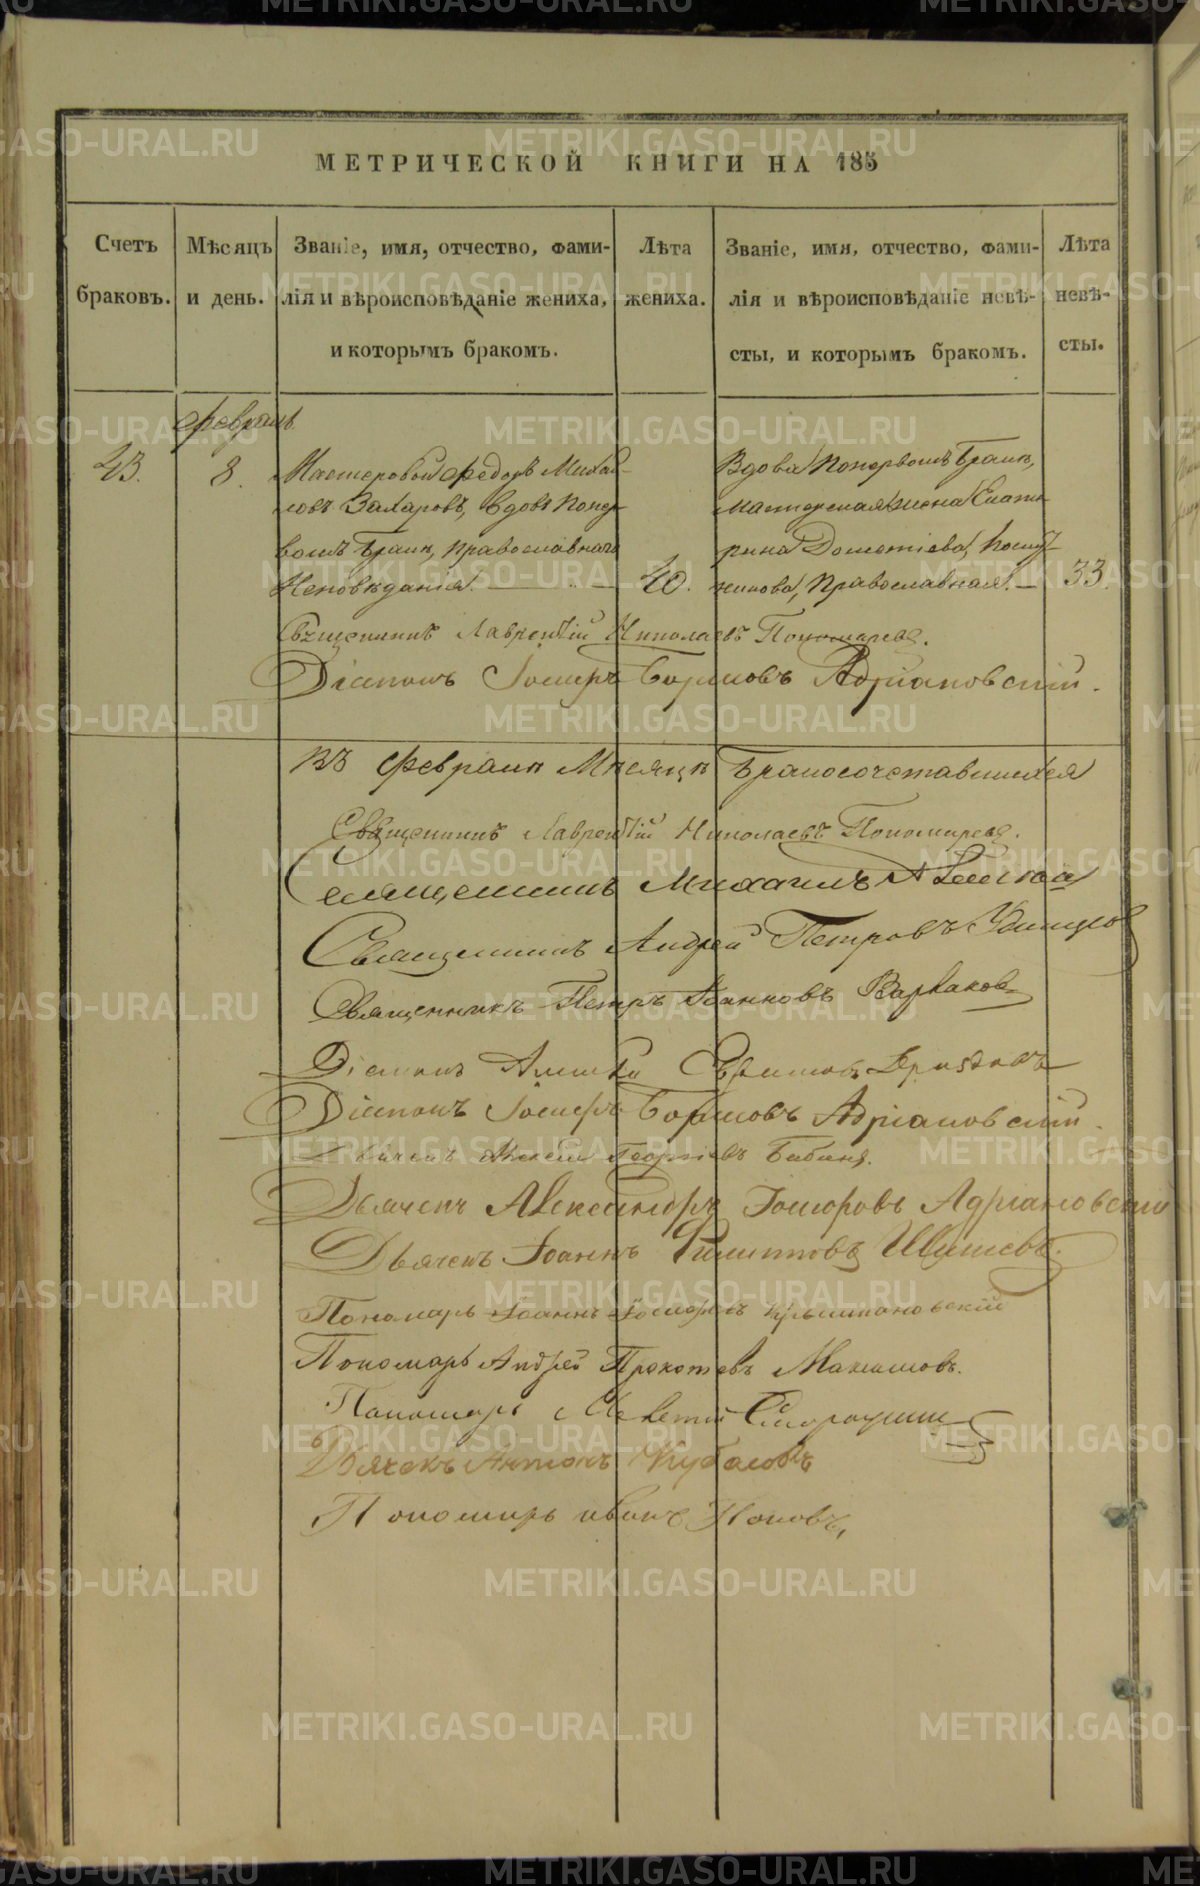 МЕТРИЧЕСКОЙ КНИГИ НА 185
Счетъ браковъ.
Мѣсяцъ и день.
Званіе, имя, отчество, фами-
лія и вѣроисповѣданіе жениха,
и которымъ бракомъ.
Лѣта жениха.
Званіе, имя, отчество, фами-
лія и вѣроисповѣданіе невѣ-
сты, и которымъ бракомъ.
Лѣта невѣ-
сты.
Февраль
43.
8.
Мастеровой Федоръ Михай
ловъ Захаровъ, вдовъ попер
вомъ бракѣ, православнаго
исповѣданія.
40.
Вдова попервомъ бракѣ,
мастерская жена Екате
рина Дометіева
православная.
33.
Священникъ Лаврентій Николаевъ Пономаревъ.
Діаконъ Іосифъ Борисовъ Адріановскій.
Въ Февралѣ Мѣсяцѣ бракосочетавшихся
Священникъ Лаврентій Николаевъ Пономаревъ.
Священникъ Михаилъ
Священникъ Андрей Петровъ Удинцов
Священникъ Петръ Іоанновъ Варваков
Діаконъ
Діаконъ Іосифъ Борисовъ Адріановскій.
Дьячекъ Алексій Георгіевъ Бабинъ.
Дьячекъ Александръ Іосифовъ Адріановскій
Дьячекъ Іоаннъ Филипповъ Шишевъ.
Пономарь Іоаннъ Іосифовъ
Пономарь Андрей Прокопьевъ Максимовъ.
Пономарь Мелетій Смородинц
Дьячекъ Антонъ Кубасовъ
Пономарь Иванъ Поповъ,
METRIKI.GASO-URAL.RU